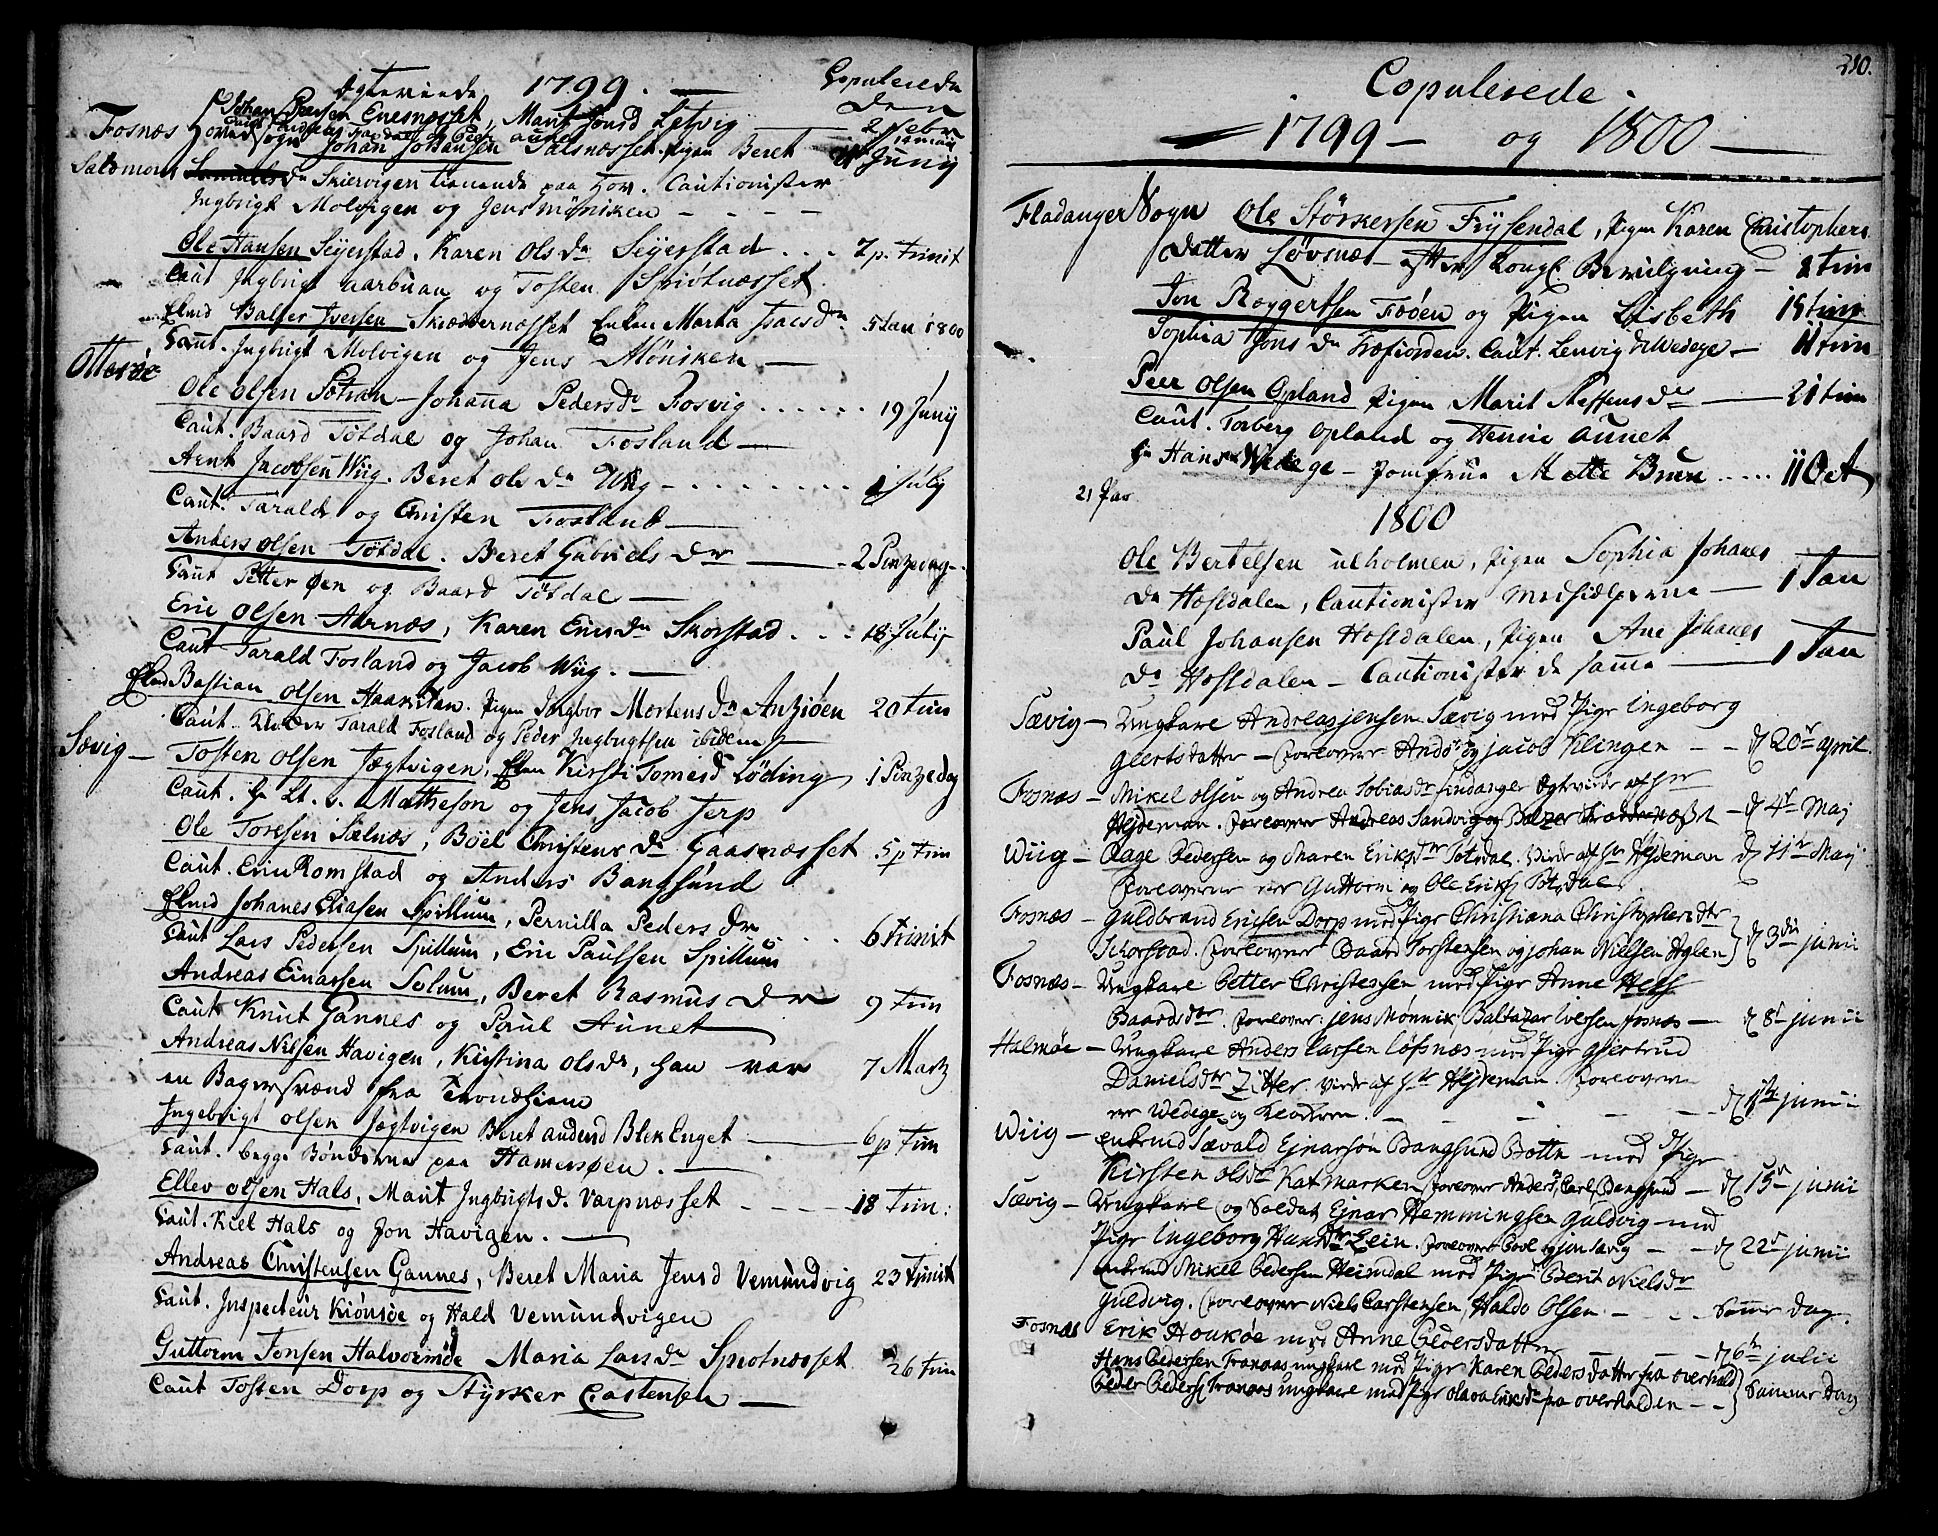 Egteviede 1799. Copulerede
den
Johan Peersen Enesnæsset, Marit Jonsd Letvig 2 Febr
Fosnæs Hovedsogn Johan Johansen Salsnæsset. pigen Beret 11 Junij
Salomons dr Skiervigen tienende paa Hov. Cautionister
Ingbrigt Molvigen og Jens Møniken
Ole Hansen Seyerstad, Karen Ols dr Seyerstad 7 p. Trinit
Caut Ingbrigt Aarbuan og Tosten Spiotnæsset
Elmd Balser Iversen Skieddernæsset Enken Marta Isacs dr 5 Jan 1800
Caut. Ingbrigt Molvigen og Jens Møniken
Otterøe
Ole Olsen Søtran Johana Pedersdr Fosvig 19 Junij
Caut. Baard Tøtdal og Johan Fosland
Arnt Jacobsen Wiig. Beret Ols dr Wiig 1 July
Caut. Tarald og Christen Fosland
Anders Olsen Tøtdal. Beret Gabriels dr 2 Pinzedag
Caut Petter Øen og Baard Tøtdal
Eric Olsen Aarnæs, Karen Erics dr Skorstad 18 July
Caut Tarald Fosland og Jacob Wiig.
Elmd Bastian Olsen Haarstan. Pigen Ingbor Mortens dr Anzioen 20 Trin
Caut. Tarald Fosland og Peder Ingbrigtsen ibidem
Sævig Tosten Olsen Jægtvigen, Kirsti Tomesd Løding 1 Pinzedag
Caut. Hr Lt. v. Matheson og Jens Jacob Jerp
Ole Toresen Sælnæs, Boel Christens dr Gaasnæsset 5 p Trin
Caut. Eric Romstad og Anders Bangsund
Elmd Johanes Eliasen Spillum, Pernilla Peders dr 6 Trinit
Caut Lars Pedersen Spillum, Eric Paulsen Spillum
Andreas Einarsen Solum, Beret Rasmus dr 9 Trin
Caut Knut Gannes og Paul Aunet
Andreas Nilsen Havigen, Kirstina Olsdr, han var 7 Martz
en Bagersvænd fra Trondhiem
Ingebrigt Olsen Jægtvigen Beret Andersd Blek Enget 6 p Trin
Caut. begge Bønderne paa Hamersøen.
Ellev Olsen Hals, Marit Ingbrigts d. Varpnæsset 18 Trin:
Caut. Kiel Hals og Jon Havigen.
Andreas Christensen Gannes, Beret Maria Jensd Vemundvig 23 Trinit
Caut. Inspecteur Kiønsøe og Hald Vemundvigen
Guttorm Jonsen Halvormøe Maria Lars dr Spiotnæsset 26 Trin
Caut Tosten Dorp og Styrker Castensen
210.
Copulerede
1799 og 1800
Fladanger Sogn Ole Størkersen Frysendal, Pigen Karen Christophers
datter Løvsnæ efter Kongl Bevilgning 8 Trin
Jon Roggertsen Feøen og Pigen Lisbeth 19 Trin
Sophia Jons dr Caut. Lenvig & Wedege 11 Trin
Peer Olsen Opland Pigen Marit Steffens dr 21 Trin
Caut. Torberg Opland og Henric Aunet
Hr Hans Wedege Jomfrue Mette Brun 11 Oct
21 Par
1800
Ole Bertelsen Ulholmen, Pigen Sophia Johanes 1 Jan
dr Hofsdalen, Cautionister Medhielperne
Paul Johansen Hofsdalen, Pigen Ane Johanes 1 Jan
dr Hofsdalen Cautionister de samme
Sævig Ungkare Andreas Jensen Sævig med Pige Ingeborg
Geertsdatter Forlover Anders og Jacob Klingen d 20de April
Fosnæs Mikel Olsen og Andrea Tobiasdr Findanger Egteviede af Hr
Hejdeman. Forlover Andreas Sandvig og Balzer d 4de Maj
Wiig Aage Pedersen og Maren Eriksdtr Totdal. Viede af Hr Hejdeman d 11te Maj
Forlovere er Guttorm og Ole Eriks Totdal
Fosnæs Guldbrand Ericsen Dorp med Pige Christiana Christophersdtr
Schorstad. Forlover Baard Torstensen og Johan Nielsen Aglen d 3die Junii
Fosnæs Ungkare Petter Christensen med Pige Anne Hels
Baardsdtr. Forlover: Jens Mønnik Baltazar Iversen Fosnæs d 8de Junii
Halmøe Ungkare Anders Larsen Løfsnæs med Pige Giertrud
Danielsdtr Zitter. viede af Hr Hejdeman. Forlovere
er Wedege og Leon d Junii
Wiig Enkemd Sævald Ejnarsøn Bangsund Botn med Pige
Kirsten Olsdtr Katmarken Forlover Anders, Carl Bangsund d 15de Junii
Sævig Ungkare og Soldat Ejnar Hemmingsen Guldvig med
Pige Ingeborg Hansdtr Lein. Forlover Poel og Jon Sævig d 22de Junii
Enkemd Mikel Pedersen Heimdal med Pige Berit Nielsdr
Guldvig. Forlover Niels Carstensen, Haldo Olsen Samme Dag.
Fosnæs Erik Houkøe med Anne Pedersdatter d 6te Julii
Hans Pedersen Tranaas ungkare med Pige Karen Pedersdatter fra Overhald
Peder Peders Tranaas Ungkare med Pige Olava Eriksdr fra Overhalden Samme Dag